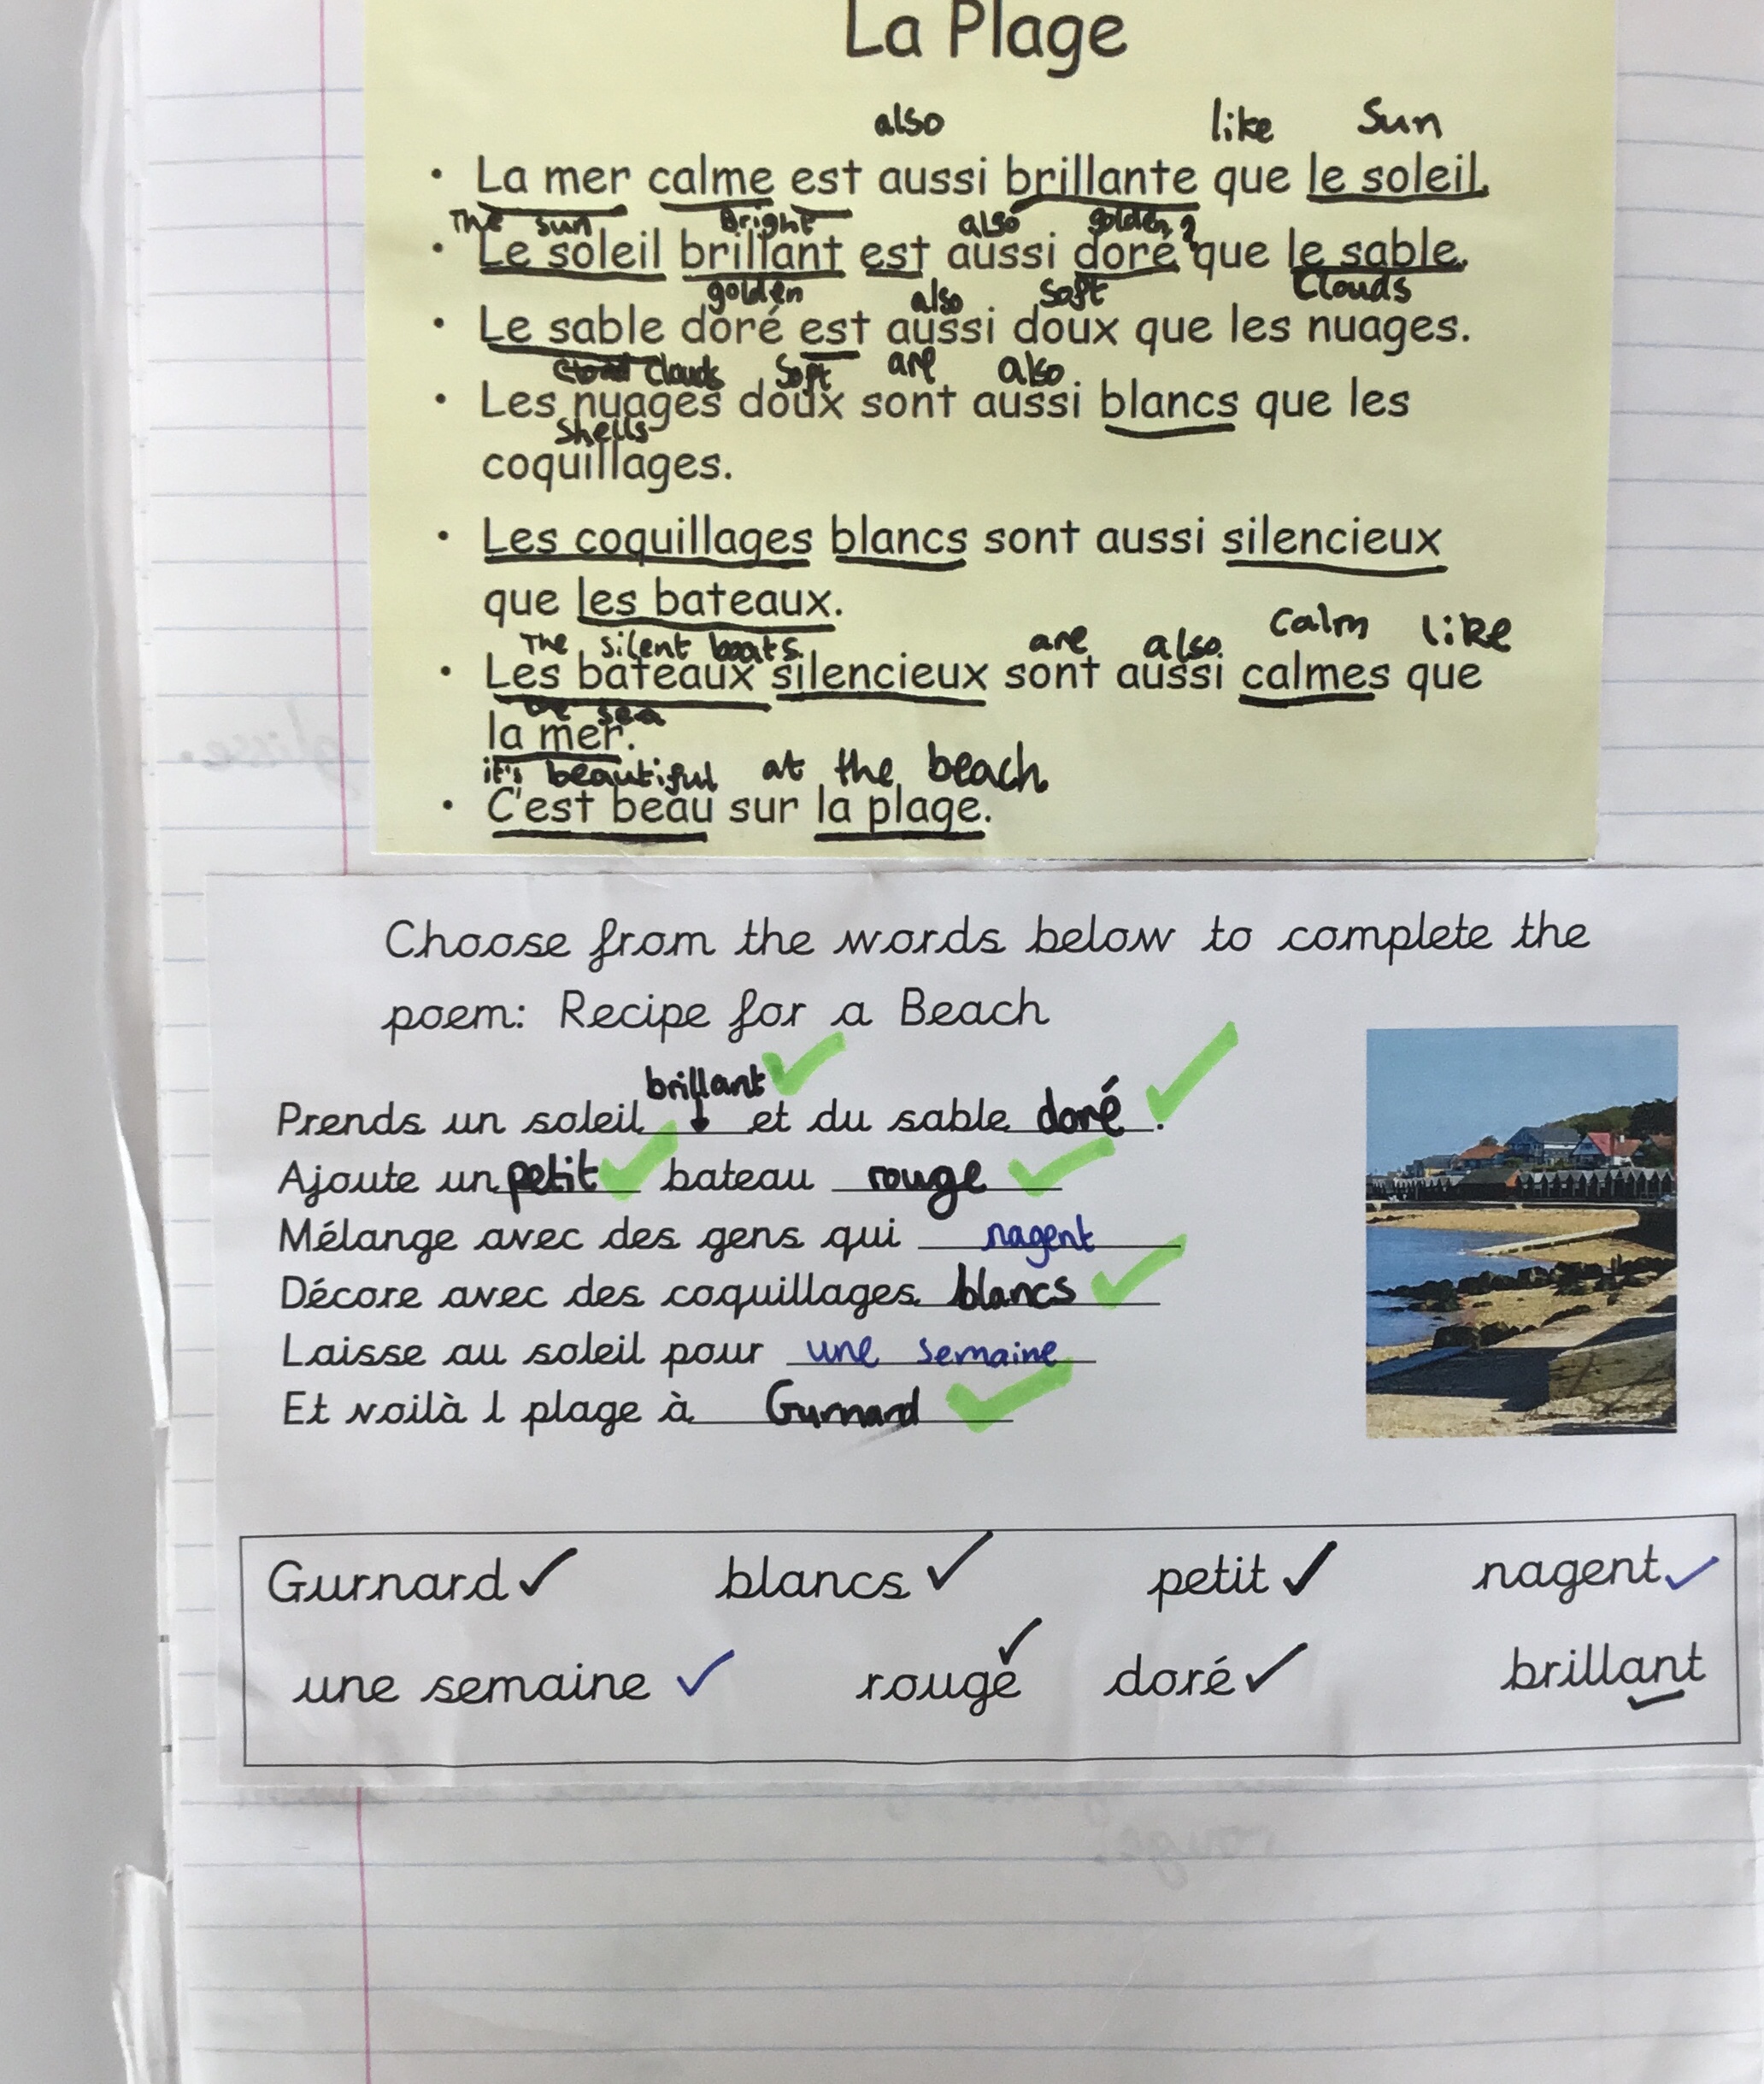 La Plage
also like Sun
• La mer calme est aussi brillante que le soleil.
The sun Bright also golden?
• Le soleil brillant est aussi doré que le sable.
golden also Soft Clouds
• Le sable doré est aussi doux que les nuages.
Clouds Soft are also
• Les nuages doux sont aussi blancs que les
Shells
coquillages.
• Les coquillages blancs sont aussi silencieux
que les bateaux.
The silent boats are also calm like
• Les bateaux silencieux sont aussi calmes que
the sea
la mer.
it's beautiful at the beach
• C'est beau sur la plage.
Choose from the words below to complete the
poem: Recipe for a Beach
brillant
Prends un soleil et du sable doré.
Ajoute un petit bateau rouge
Mélange avec des gens qui nagent
Décore avec des coquillages blancs
Laisse au soleil pour une semaine
Et voilà l plage à Gurnard
Gurnard ✓ blancs ✓ petit ✓ nagent ✓
une semaine ✓ rouge ✓ doré ✓ brillant ✓